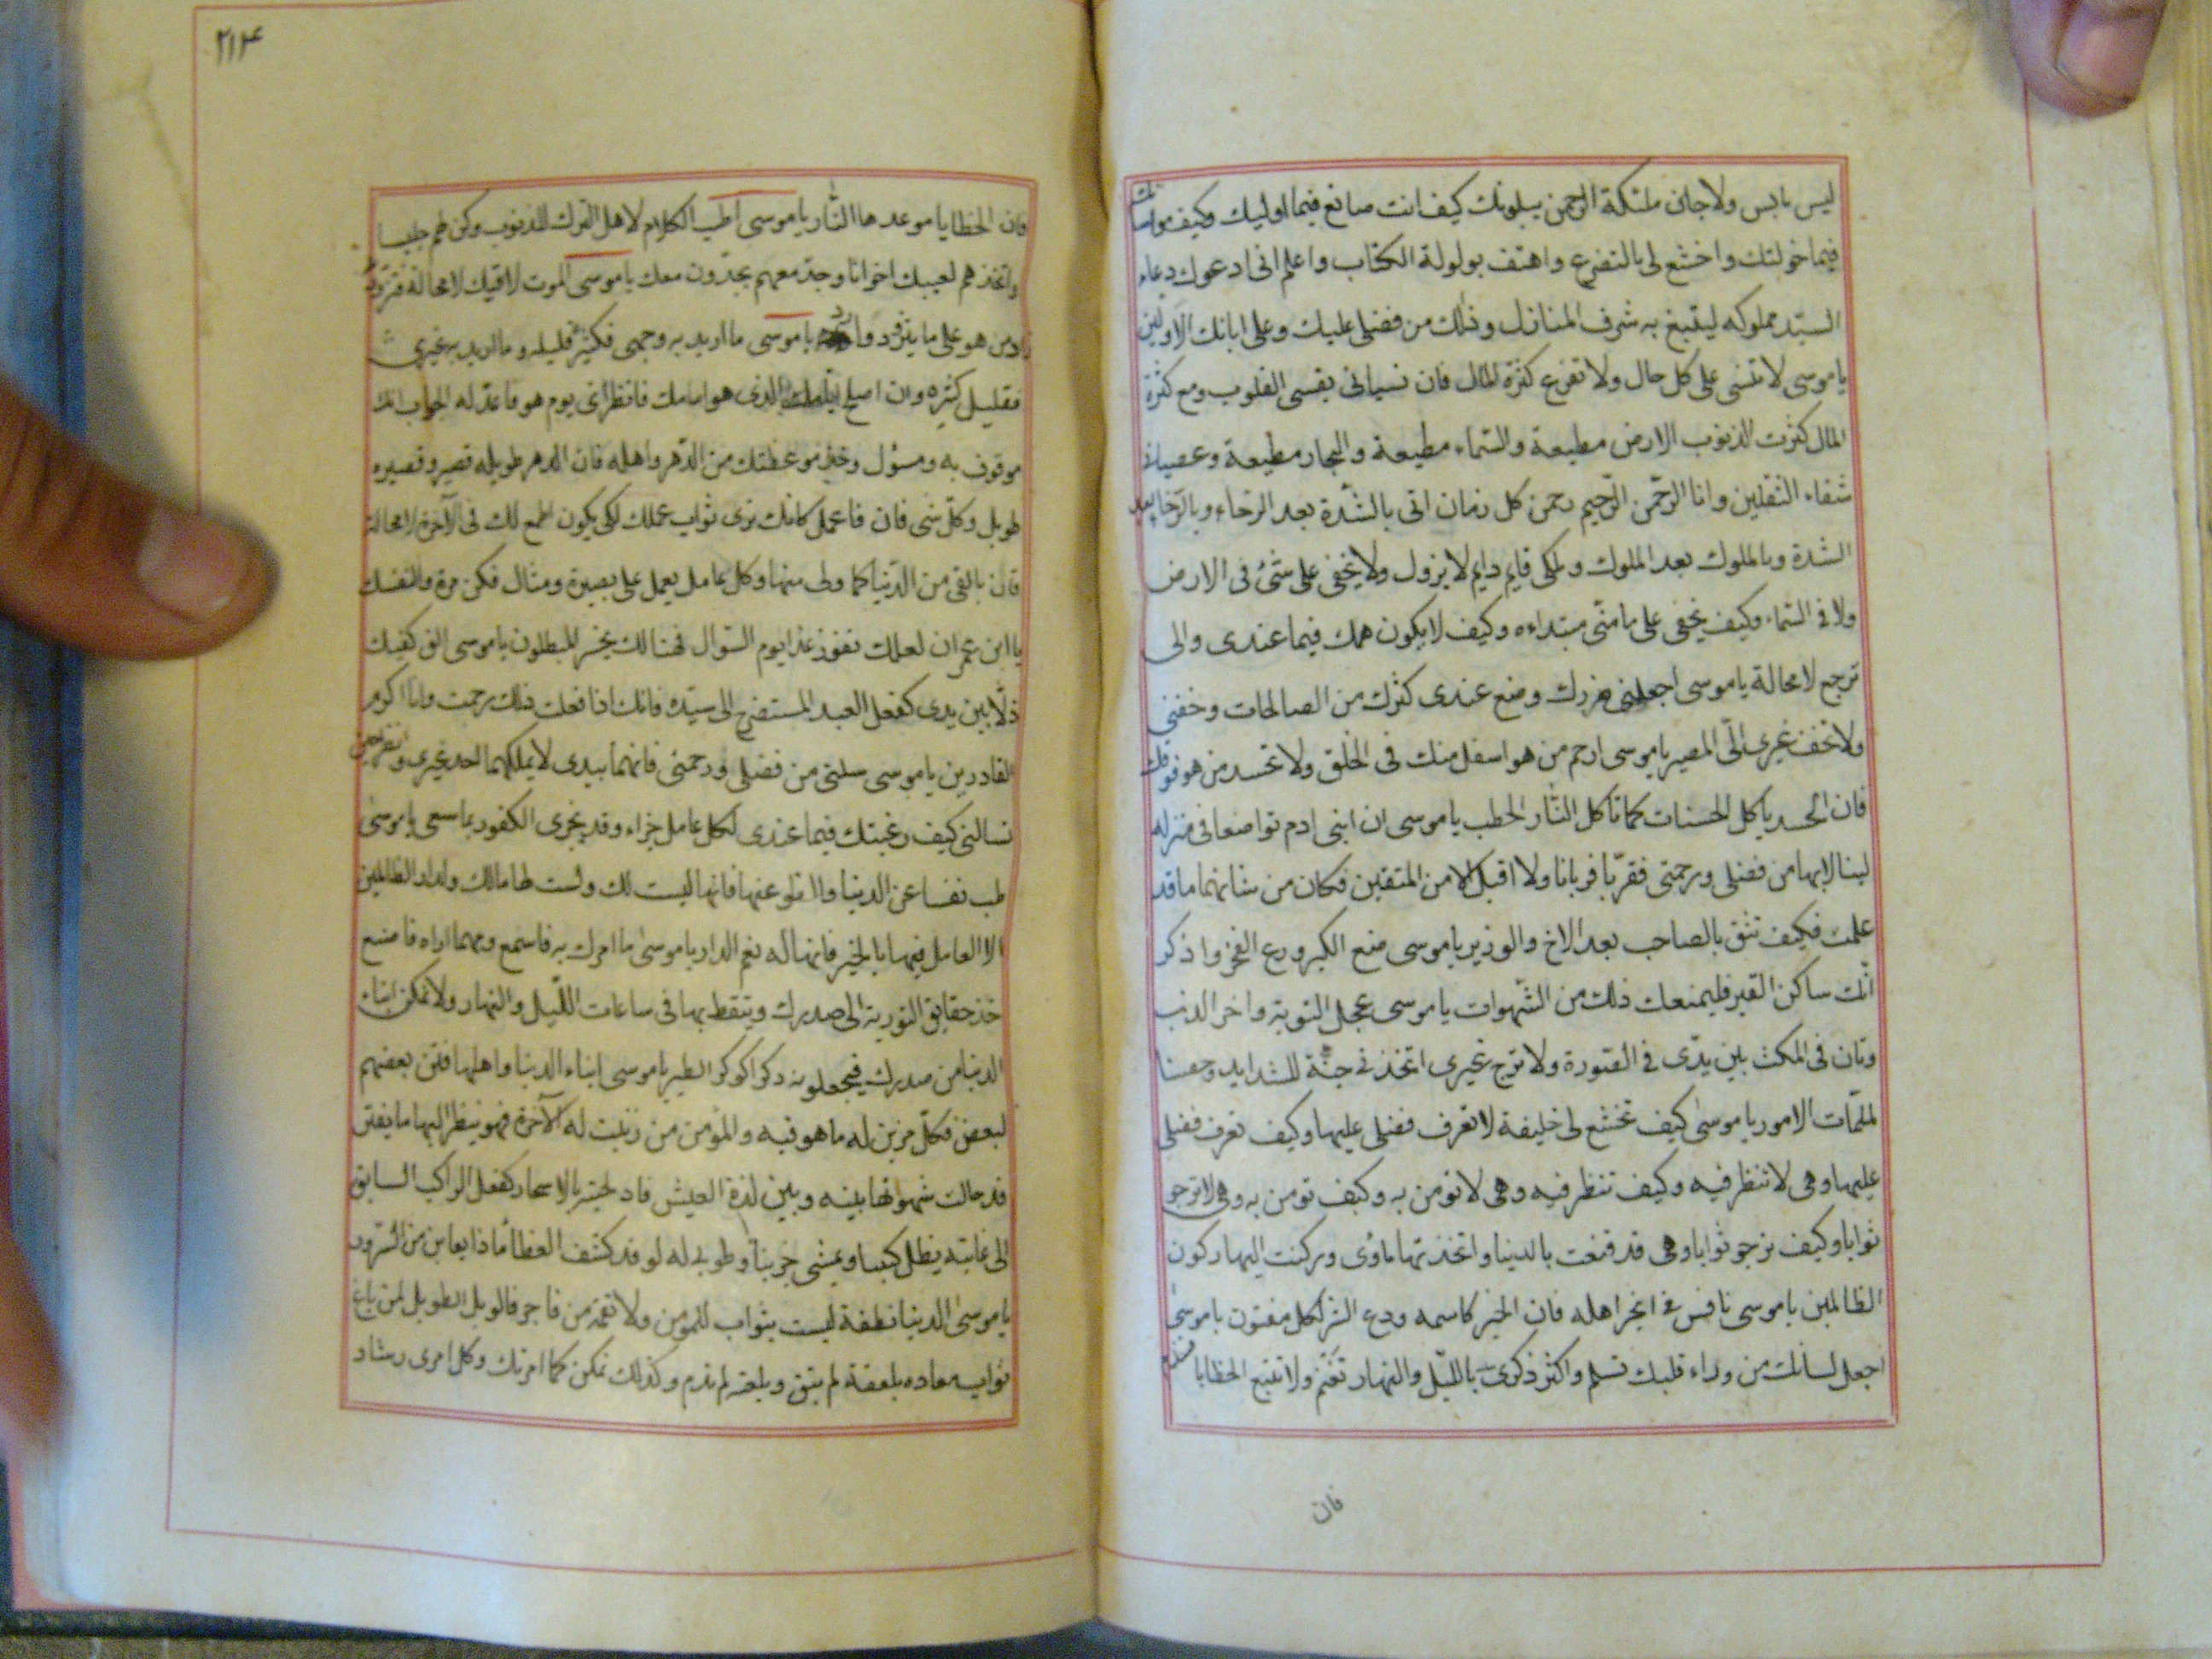 ليس بانس ولا جان ملئكة الرحمن يبلونك كيف انت صانع فيما اوليك وكيف مواساتك
فيما خولتك واخشع لى بالتضرع واهتف بولولة الكتاب واعلم انى ادعوك دعاء
السيّد مملوكه ليبلغ به شرف المنازل وذلك من فضلى عليك وعلى ابائك الاولين
يا موسى لا تنسى على كل حال ولا تفرح كثرة المال فان نسيانى يقسى القلوب ومع كثرة
المال كثرت الذنوب الارض مطيعة والسّماء مطيعة والبحار مطيعة وعصيانى
شقاء الثقلين وانا الرحّمن الرّحيم رحمن كل زمان اتى بالشّدة بعد الرخاء وبالرّخاء بعد
الشدة وبالملوك بعد الملوك وملكى قايم دايم لا يزول ولا يخفى على شئ فى الارض
ولا فى السّماء وكيف يخفى على ما منّى مبتداءه وكيف لا يكون همك فيما عندى والى
ترجع لا محالة يا موسى اجعلنى حرزك وضع عندى كنزك من الصالحات وخفنى
ولا تخف غيرى الىّ المصير يا موسى ارحم من هو اسفل منك فى الخلق ولا تحسد من هو فوقك
فان الحسد ياكل الحسنات كما تاكل النّار الحطب يا موسى ان ابنى ادم تواضعا فى منزله
لينالا بها من فضلى ورحمتى فقربّا قربانا ولا اقبل الا من المتقين فكان من شانهما ما قد
علمت فكيف تثق بالصاحب بعد الاخ والوزير يا موسى ضع الكبر ودع الفخر واذكر
انّك ساكن القبر فليمنعك ذلك من الشّهوات يا موسى عجل التوبة واخر الذنب
وتان فى المكث بين يدّى فى الصّلوة ولا ترج غيرى اتخذنى جنّة للشدايد وحصنا
لملمّات الامور يا موسى كيف تخشع لى خليفة لا تعرف فضلى عليها وكيف تعرف فضلى
عليها وهى لا تنظر فيه وكيف تنظر فيه وهى لا تومن به وكيف تومن به وهى لا ترجو
ثوابا وكيف ترجو ثوابا وهى قد قنعت بالدنيا واتخذتها ماوى وركنت اليها ركون
الظالمين يا موسى نافس فى الخير اهله فان الخير كاسمه ودع الشر لكل مفتون يا موسى
اجعل لسانك من وراء قلبك تسلم واكثر ذكرى باللّيل والنهار تغنم ولا تتبع الخطايا فتندم
فان
٢١٤
فان الخطايا موعدها النّار يا موسى اطب الكلام لاهل الترك للذنوب وكن لهم جليسا
واتخذهم لعيبك اخوانا وجدّ معهم يجدّون معك يا موسى الموت لاقيك لا محالة فتزوّد
زاد من هو على ما يتزوّد وارد يا موسى ما اريد به وجهى فكثير قليله وما اريد به غيرى
فقليل كثيره وان اصلح ايّامك الذى هو امامك فانظر اى يوم هو فاعدّ له الجواب انك
موقوف به ومسؤل وخذ موعظتك من الدّهر واهله فان الدهر طويله قصير وقصيره
طويل وكلّ شى فان فاعمل كانك ترى ثواب عملك لكى يكون اطمع لك فى الآخرة لا محالة
فان ما بقى من الدّنيا كما ولى منها وكل عامل يعمل على بصيرة ومثال فكن مرتادا لنفسك
يا ابن عمران لعلك تفوز غدا يوم السّوال فهنالك يخسر المبطلون يا موسى الق كفيك
ذلّا بين يدى كفعل العبد المستصرخ الى سيّده فانك اذا فعلت ذلك رحمت وانا اكرم
القادرين يا موسى سلنى من فضلى ورحمتى فانهما بيدى لا يملكهما احد غيرى وانظر حين
تسالنى كيف رغبتك فيما عندى لكل عامل جزاء وقد يجزى الكفور بما سعى يا موسى
طب نفسا عن الدنيا وانطو عنها فانها ليست لك ولست لها مالك ولدار الظالمين
الا العامل فيها بالخير فانها له نعم الدار يا موسى ما امرك به فاسمع ومهما اراه فاصنع
خذ حقايق التورية الى صدرك وتيقظ بها فى ساعات اللّيل والنهار ولا تمكن ابناء
الدنيا من صدرك فيجعلونه وكرا كوكر الطير يا موسى ابناء الدنيا واهلها فتن بعضهم
لبعض فكلّ مزين له ما هو فيه والمؤمن من زينت له الآخرة فهو ينظر اليها ما يفتر
قد حالت شهوتها بينه وبين لذة العيش فادلجته بالاسحار كفعل الراكب السابق
الى غايته يظل كئيبا ويمشى حزينا وطوبى له لو قد كشف الغطا ماذا يعاين من السّرور
يا موسى الدنيا نطفة ليست بثواب للمومن ولا نقمة من فاجر فالويل الطويل لمن باع
ثواب معاده بلعقة لم يبق وبلعقة لم تدم وكذلك فكن كما امرتك وكل امرى رشاد